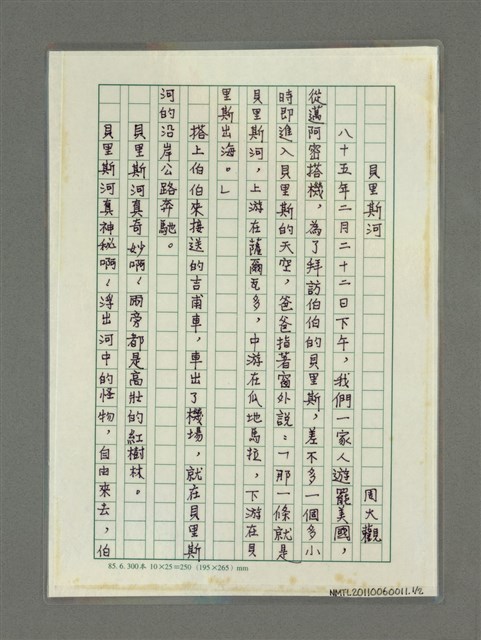 貝里斯河
周大觀
八十五年二月二十二日下午，我們一家人遊罷美國，
從邁阿密搭機，為了拜訪伯伯的貝里斯，差不多一個多小
時即進入貝里斯的天空，爸爸指著窗外說：「那一條就是
貝里斯河，上游在薩爾瓦多，中游在瓜地馬拉，下游在貝
里斯出海。」
搭上伯伯來接送的吉甫車，車出了機場，就在貝里斯
河的沿岸公路奔馳。
貝里斯河真奇妙啊！兩旁都是高壯的紅樹林。
貝里斯河真神秘啊！浮出河中的怪物，自由來去，伯
85.6.300本 10×25=250 (195×265) mm
NMTL20110060011.1/2